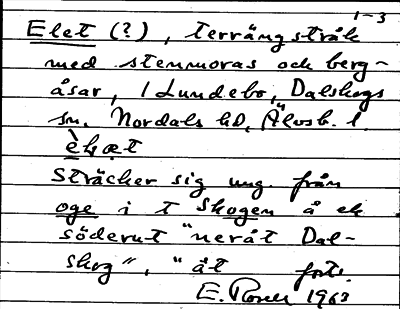 1-3
Elet (?), terrängstråk
med stenmoras och berg-
åsar, 1 Lundebo, Dalskogs
sn. Nordals hd, Älvsb. l.
Sträcker sig ung. från
oge i t Skogen å ek
söderut "neråt Dal-
skog", "åt
E. Rosell 1963